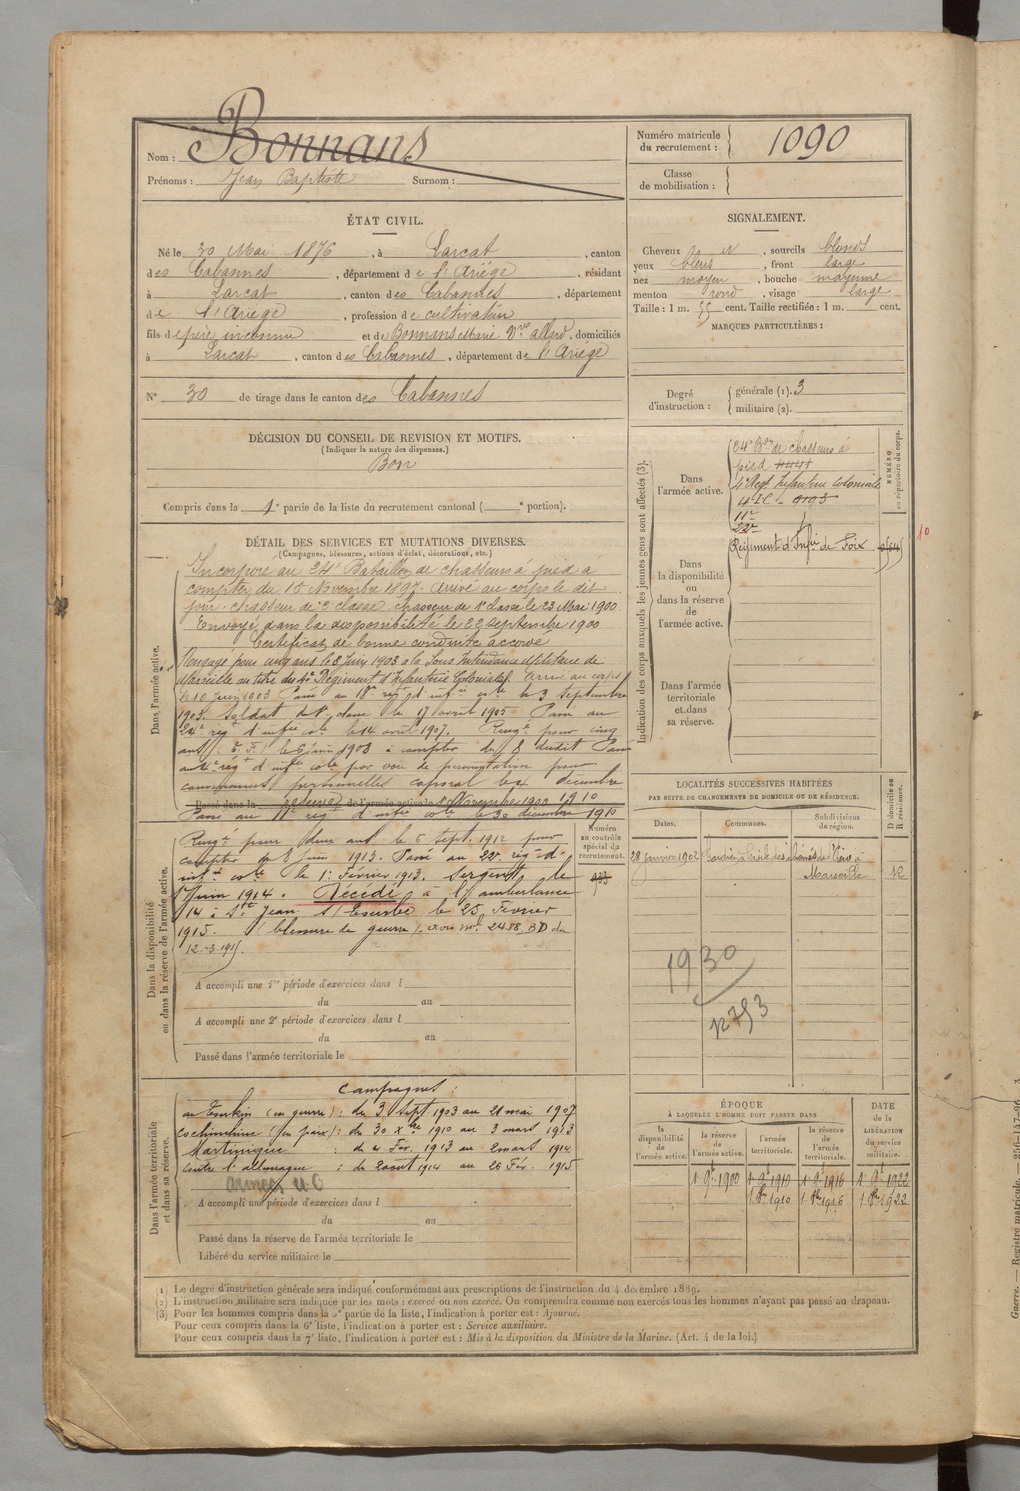 Nom : Bonnans
Prénoms : Jean Baptiste Surnom :
Numéro matricule du recrutement : 1090
Classe de mobilisation :
ÉTAT CIVIL.
Né le 30 Mai 1876, à Larcat, canton
des Cabannes, département de l'Ariège, résidant
à Larcat, canton des Cabannes, département
de l'Ariège, profession de cultivateur
fils de père inconnu et de Bonnans Marie Vve allard, domiciliés
à Larcat, canton des Cabannes, département de l'Ariège
N° 30 de tirage dans le canton des Cabannes
SIGNALEMENT.
Cheveux, sourcils blonds
yeux bleus, front large
nez moyen, bouche moyenne
menton rond, visage large
Taille : 1 m. 55 cent. Taille rectifiée : 1 m. cent.
MARQUES PARTICULIÈRES :
Degré d'instruction : générale (1). 3
militaire (2).
DÉCISION DU CONSEIL DE REVISION ET MOTIFS.
(Indiquer la nature des dispenses.)
Bon
Compris dans la 1e partie de la liste du recrutement cantonal ( e portion).
Indication des corps auxquels les jeunes gens sont affectés (3).
NUMÉRO au répertoire du corps.
Dans l'armée active.
24e Bon de chasseurs à
pied
4e Regt Infanterie Coloniale
4e I.C. 9195
11e
22e
Régiment d'Infie de Foix
10
Dans la disponibilité ou dans la réserve de l'armée active.
Dans l'armée territoriale et dans sa réserve.
DÉTAIL DES SERVICES ET MUTATIONS DIVERSES.
(Campagnes, blessures, actions d'éclat, décorations, etc.)
Dans l'armée active.
Incorporé au 24e Bataillon de chasseurs à pied à
compter du 15 Novembre 1897. Arrivé au corps le dit
jour. chasseur de 2e classe. chasseur de 1e classe le 23 Mai 1900
Envoyé dans la disponibilité le 22 septembre 1900
Certificat de bonne conduite accordé
Rengagé pour cinq ans le 8 Juin 1903 à la Sous Intendance Militaire de
Marseille au titre du 4e Régiment d'Infanterie Coloniale. Arrivé au corps
le 10 Juin 1903. Passé au 18e régt d'infie cole le 3 Septembre
1903. Soldat de 1e classe le 17 avril 1905. Passé au
24e régt d'infie cole le 14 avril 1907. Rengé pour cinq
ans le 6 juin 1908 à compter du 8 dudit. Passé
au 4e régt d'infie cole par voie de permutation pour
convenances personnelles caporal le 4 décembre
1910
Passé dans la réserve de l'armée active le 1er Novembre 1900
Passé au 11e régt d'infie cole le 30 décembre 1910
Dans la disponibilité ou dans la réserve de l'armée active.
Numéro au contrôle spécial du recrutement.
Rengé pour deux ans le 5 Sept. 1912 pour
compter du 8 Juin 1913. Passé au 22e régt d'
infie cole le 1er Février 1913. Sergent le
1er Juin 1914. Décédé à l'ambulance
14 à St Jean s/ Tourbe le 25 Février
1915. (blessure de guerre). avis mel 2488 BD du
12-3-1915.
A accompli une 1re période d'exercices dans l
du au
A accompli une 2e période d'exercices dans l
du au
Passé dans l'armée territoriale le
LOCALITÉS SUCCESSIVES HABITÉES
PAR SUITE DE CHANGEMENTS DE DOMICILE OU DE RÉSIDENCE.
Dates. Communes. Subdivisions de région. D domicile ou R résidence.
28 janvier 1902 Gardien à l'asile des aliénés de à
Marseille R
1930
12793
Dans l'armée territoriale et dans sa réserve.
Campagnes :
au Tonkin (en guerre) : du 3 Sept. 1903 au 21 mai 1907
Cochinchine (en paix) : du 30 Xbre 1910 au 3 mars 1913
Martinique : du 4 Fév. 1913 au 2 mars 1914
contre l'allemagne : du 2 août 1914 au 25 Fév. 1915
A accompli une période d'exercices dans l
du au
Passé dans la réserve de l'armée territoriale le
Libéré du service militaire le
ÉPOQUE
À LAQUELLE L'HOMME DOIT PASSER DANS
DATE de la LIBÉRATION du service militaire.
la disponibilité de l'armée active. la réserve de l'armée active. l'armée territoriale. la réserve de l'armée territoriale.
1er 9e 1900 1er 9e 1910 1er 9e 1916 1er 9e 1922
1er 8bre 1910 1er 8bre 1916 1er 8bre 1922
(1) Le degré d'instruction générale sera indiqué conformément aux prescriptions de l'instruction du 4 décembre 1889.
(2) L'instruction militaire sera indiquée par les mots : exercé ou non exercé. On comprendra comme non exercés tous les hommes n'ayant pas passé au drapeau.
(3) Pour les hommes compris dans la 5e partie de la liste, l'indication à porter est : Ajourné.
Pour ceux compris dans la 6e liste, l'indication à porter est : Service auxiliaire.
Pour ceux compris dans la 7e liste, l'indication à porter est : Mis à la disposition du Ministre de la Marine. (Art. 4 de la loi.)
Guerre. — Registre matricule. — 256-147-96. 3